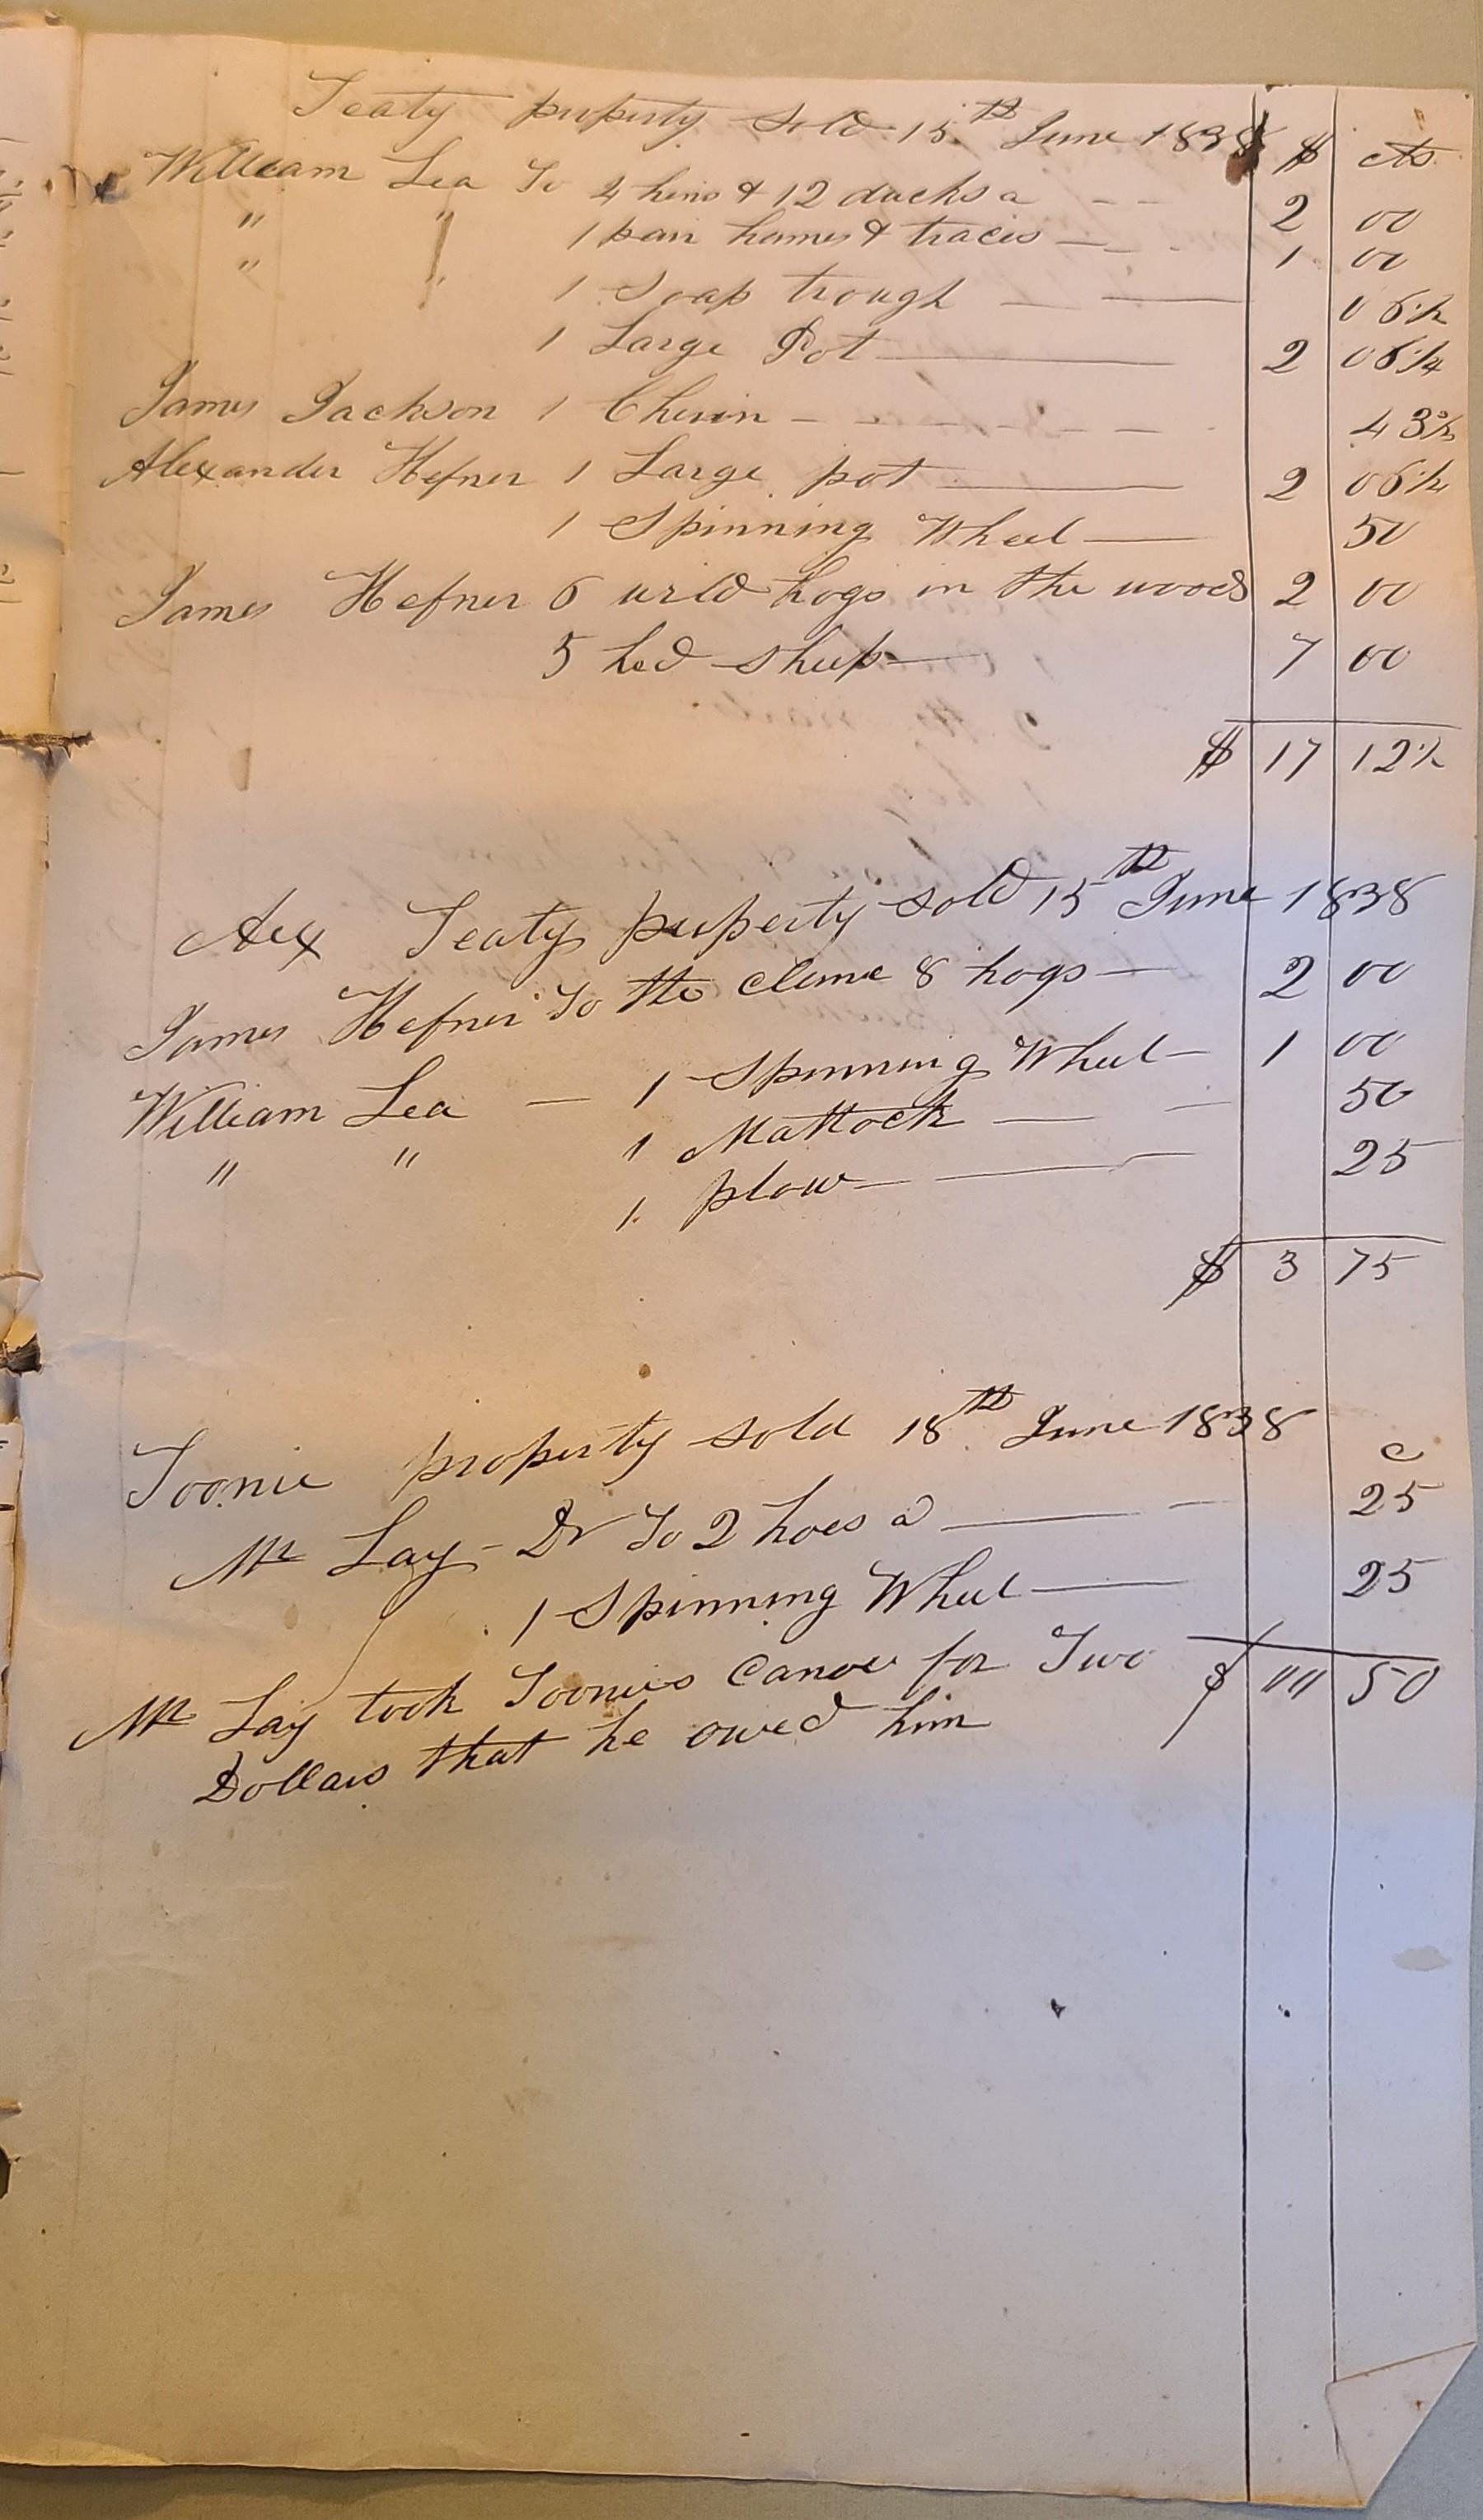 Teaty property Sold 15th June 1838 $ cts
William Lea To 4 hens & 12 ducks a 2 00
" " 1 pair hames & traces 1 00
" " 1 Soap trough 06 1/4
1 Large Pot 2 06 1/4
James Jackson 1 Churin 43 3/4
Alexander Hefner 1 Large pot 2 06 1/4
1 Spinning Wheel 50
James Hefner 6 wild hogs in the woods 2 00
5 hed sheep 7 00
$ 17 12 1/2
Aex Teaty property sold 15th June 1838
James Hefner To the clime 8 hogs 2 00
William Lea 1 Spinning Wheel 1 00
" " 1 Mattock 50
1 plow 25
$ 3 75
Toonie property sold 18th June 1838 c
Mr Lay - Dr To 2 hoes a 25
1 Spinning Wheel 25
Mr Lay took Toonies Canoe for Two $ "" 50
Dollars that he owed him